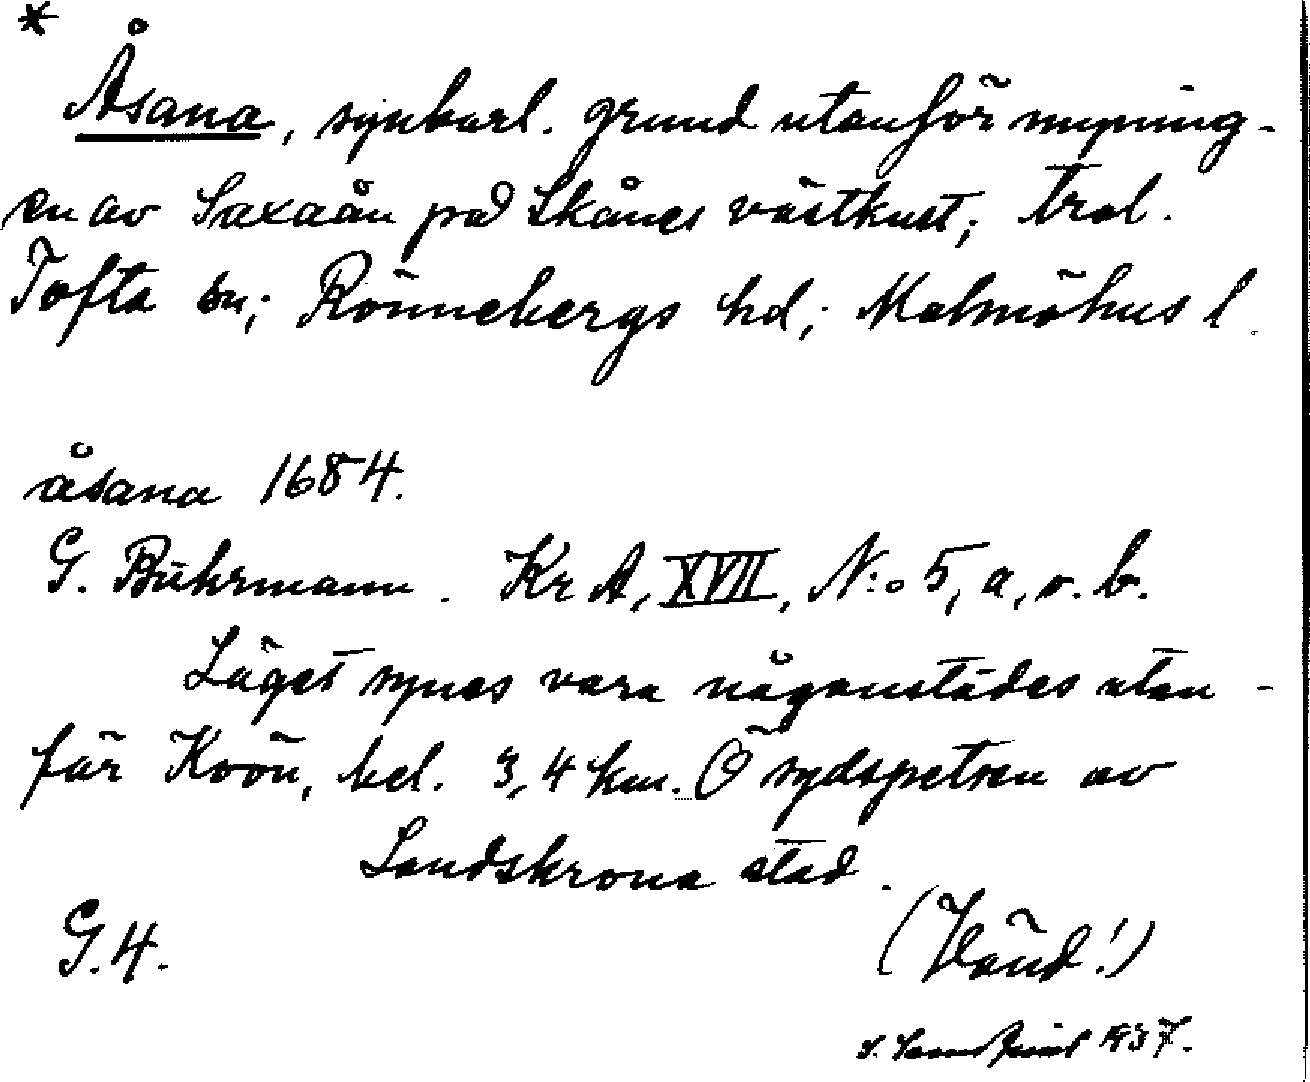 *
Åsana, synbarl. grund utanför mynning-
en av Saxaån på Skånes västkust; trol.
Tofta sn; Rönnebergs hd; Malmöhus l.
åsana 1684.
G. Buhrmann. Kr A, XVII, N:o 5, a, o. b.
Läget synes vara någonstädes utan-
för Koön, bel. 3,4 km. Ö sydspetsen av
Landskrona stad.
G.4.
(Vänd!)
1937.